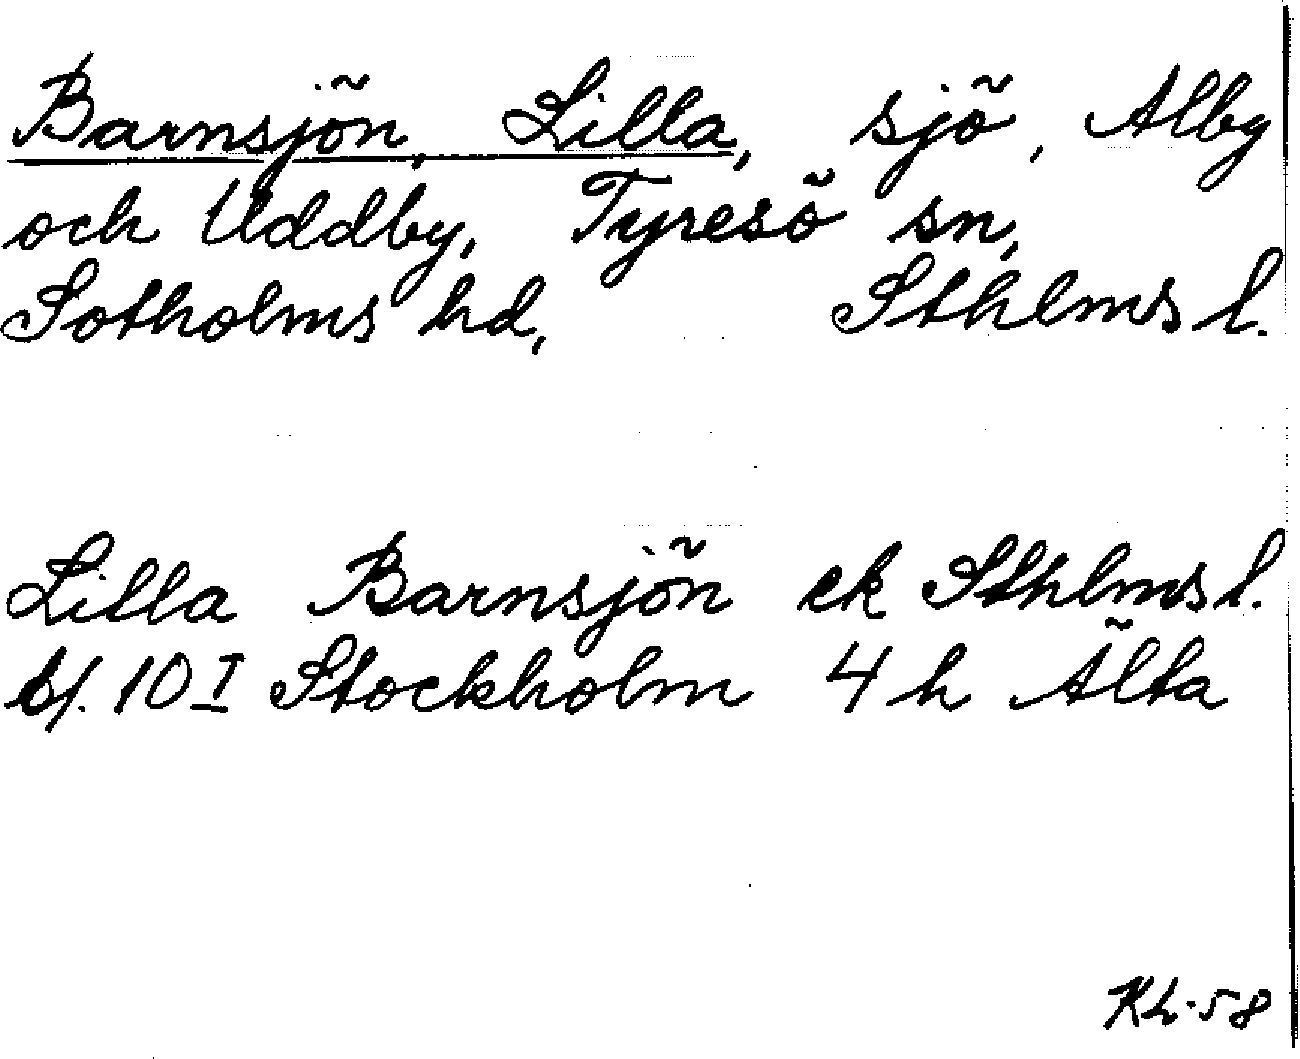 Barnsjön, Lilla, sjö, Alby
och Uddby, Tyresö sn,
Sotholms hd, Sthlms l.
Lilla Barnsjön ek Sthlms l.
bl. 10 I Stockholm 4 h Älta
KL-58